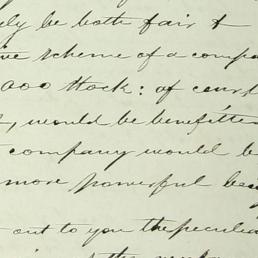 ly be both fair &
ive scheme of a compa
000 Stock: of cours
, would be benefitte
company would b
more powerful bec
out to you the peculia